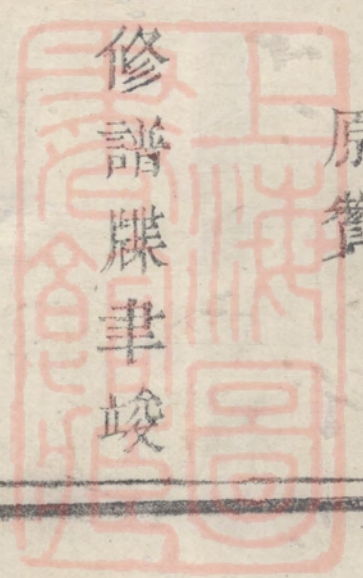 原
修譜牒聿竣
上海圖
書館藏